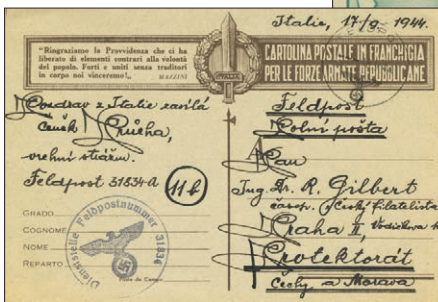 Italie, 17/9. 1944.
"Ringraziamo la Provvidenza che ci ha
liberato di elementi contrari alla volontà
del popolo. Forti e uniti senza traditori
in corpo noi vinceremo!„
MAZZINI
CARTOLINA POSTALE IN FRANCHIGIA
PER LE FORZE ARMATE REPUBBLICANE
Pozdrav z Italie zasílá
Čeněk Průcha,
vrchní strážm.
Feldpost 31834-A
11b
GRADO
COGNOME
NOME
REPARTO
Posta da Campo
Dienststelle Feldpostnummer 31834
Feldpost
Polní pošta
Pan
Ing. Dr. R. Gilbert
časop. Český filatelista
Praha II, Vodičkova
Protektorát
Čechy a Morava